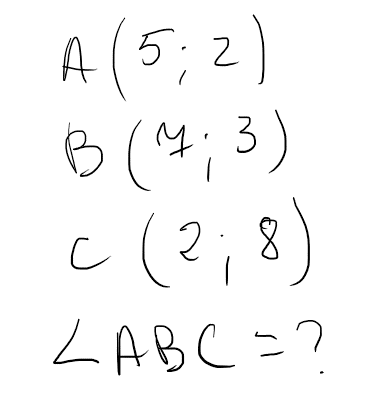 A (5; 2)
B (7; 3)
C (2; 8)
∠ABC = ?